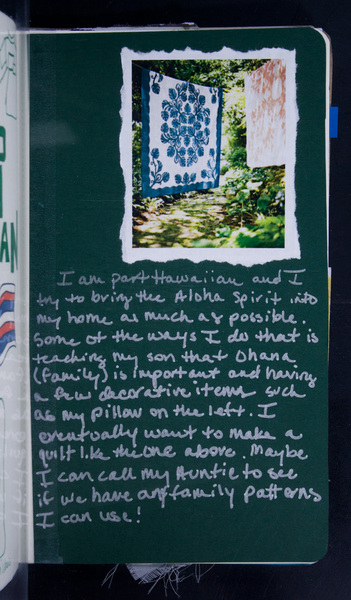 I am part Hawaiian and I
try to bring the Aloha Spirit into
my home as much as possible.
Some of the ways I do that is
teaching my son that Ohana
(family) is important and having
a few decorative items such
as my pillow on the left. I
eventually want to make a
quilt like the one above. Maybe
I can call my Auntie to see
if we have any family patterns
I can use!
AN